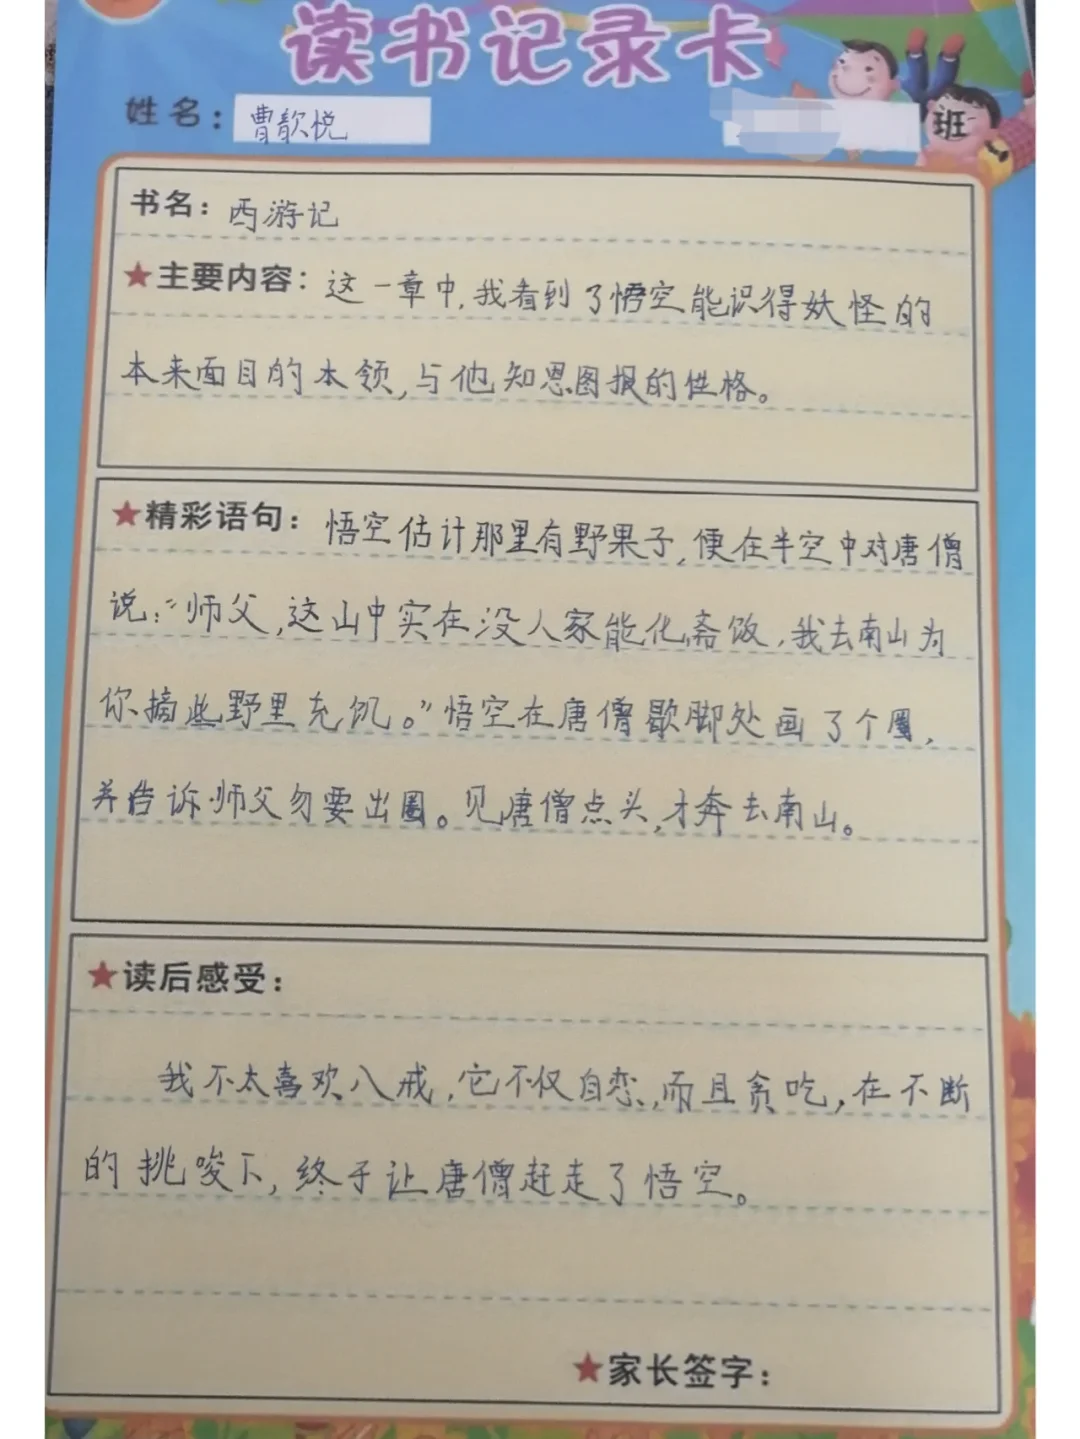 读书记录卡
姓名：曹歆悦
班
书名：西游记
★主要内容：这一章中，我看到了悟空能识得妖怪的
本来面目的本领，与他知恩图报的性格。
★精彩语句：悟空估计那里有野果子，便在半空中对唐僧
说：“师父，这山中实在没人家能化斋饭，我去南山为
你摘些野里充饥。”悟空在唐僧歇脚处画了个圈，
并告诉师父勿要出圈。见唐僧点头，才奔去南山。
★读后感受：
我不太喜欢八戒，它不仅自恋，而且贪吃，在不断
的挑唆下，终于让唐僧赶走了悟空。
★家长签字：